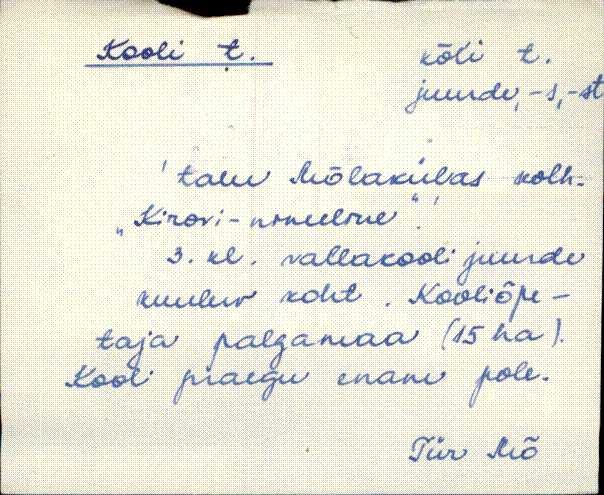 Kooli t.
kōli t.
juurde, -s, -st
'talu Mõlakülas kolh.
„Kirovi-nimeline".'
3. kl. vallakooli juurde
kuuluv koht. Kooliõpe-
taja palgamaa (15 ha).
Kooli praegu enam pole.
Tür Mõ